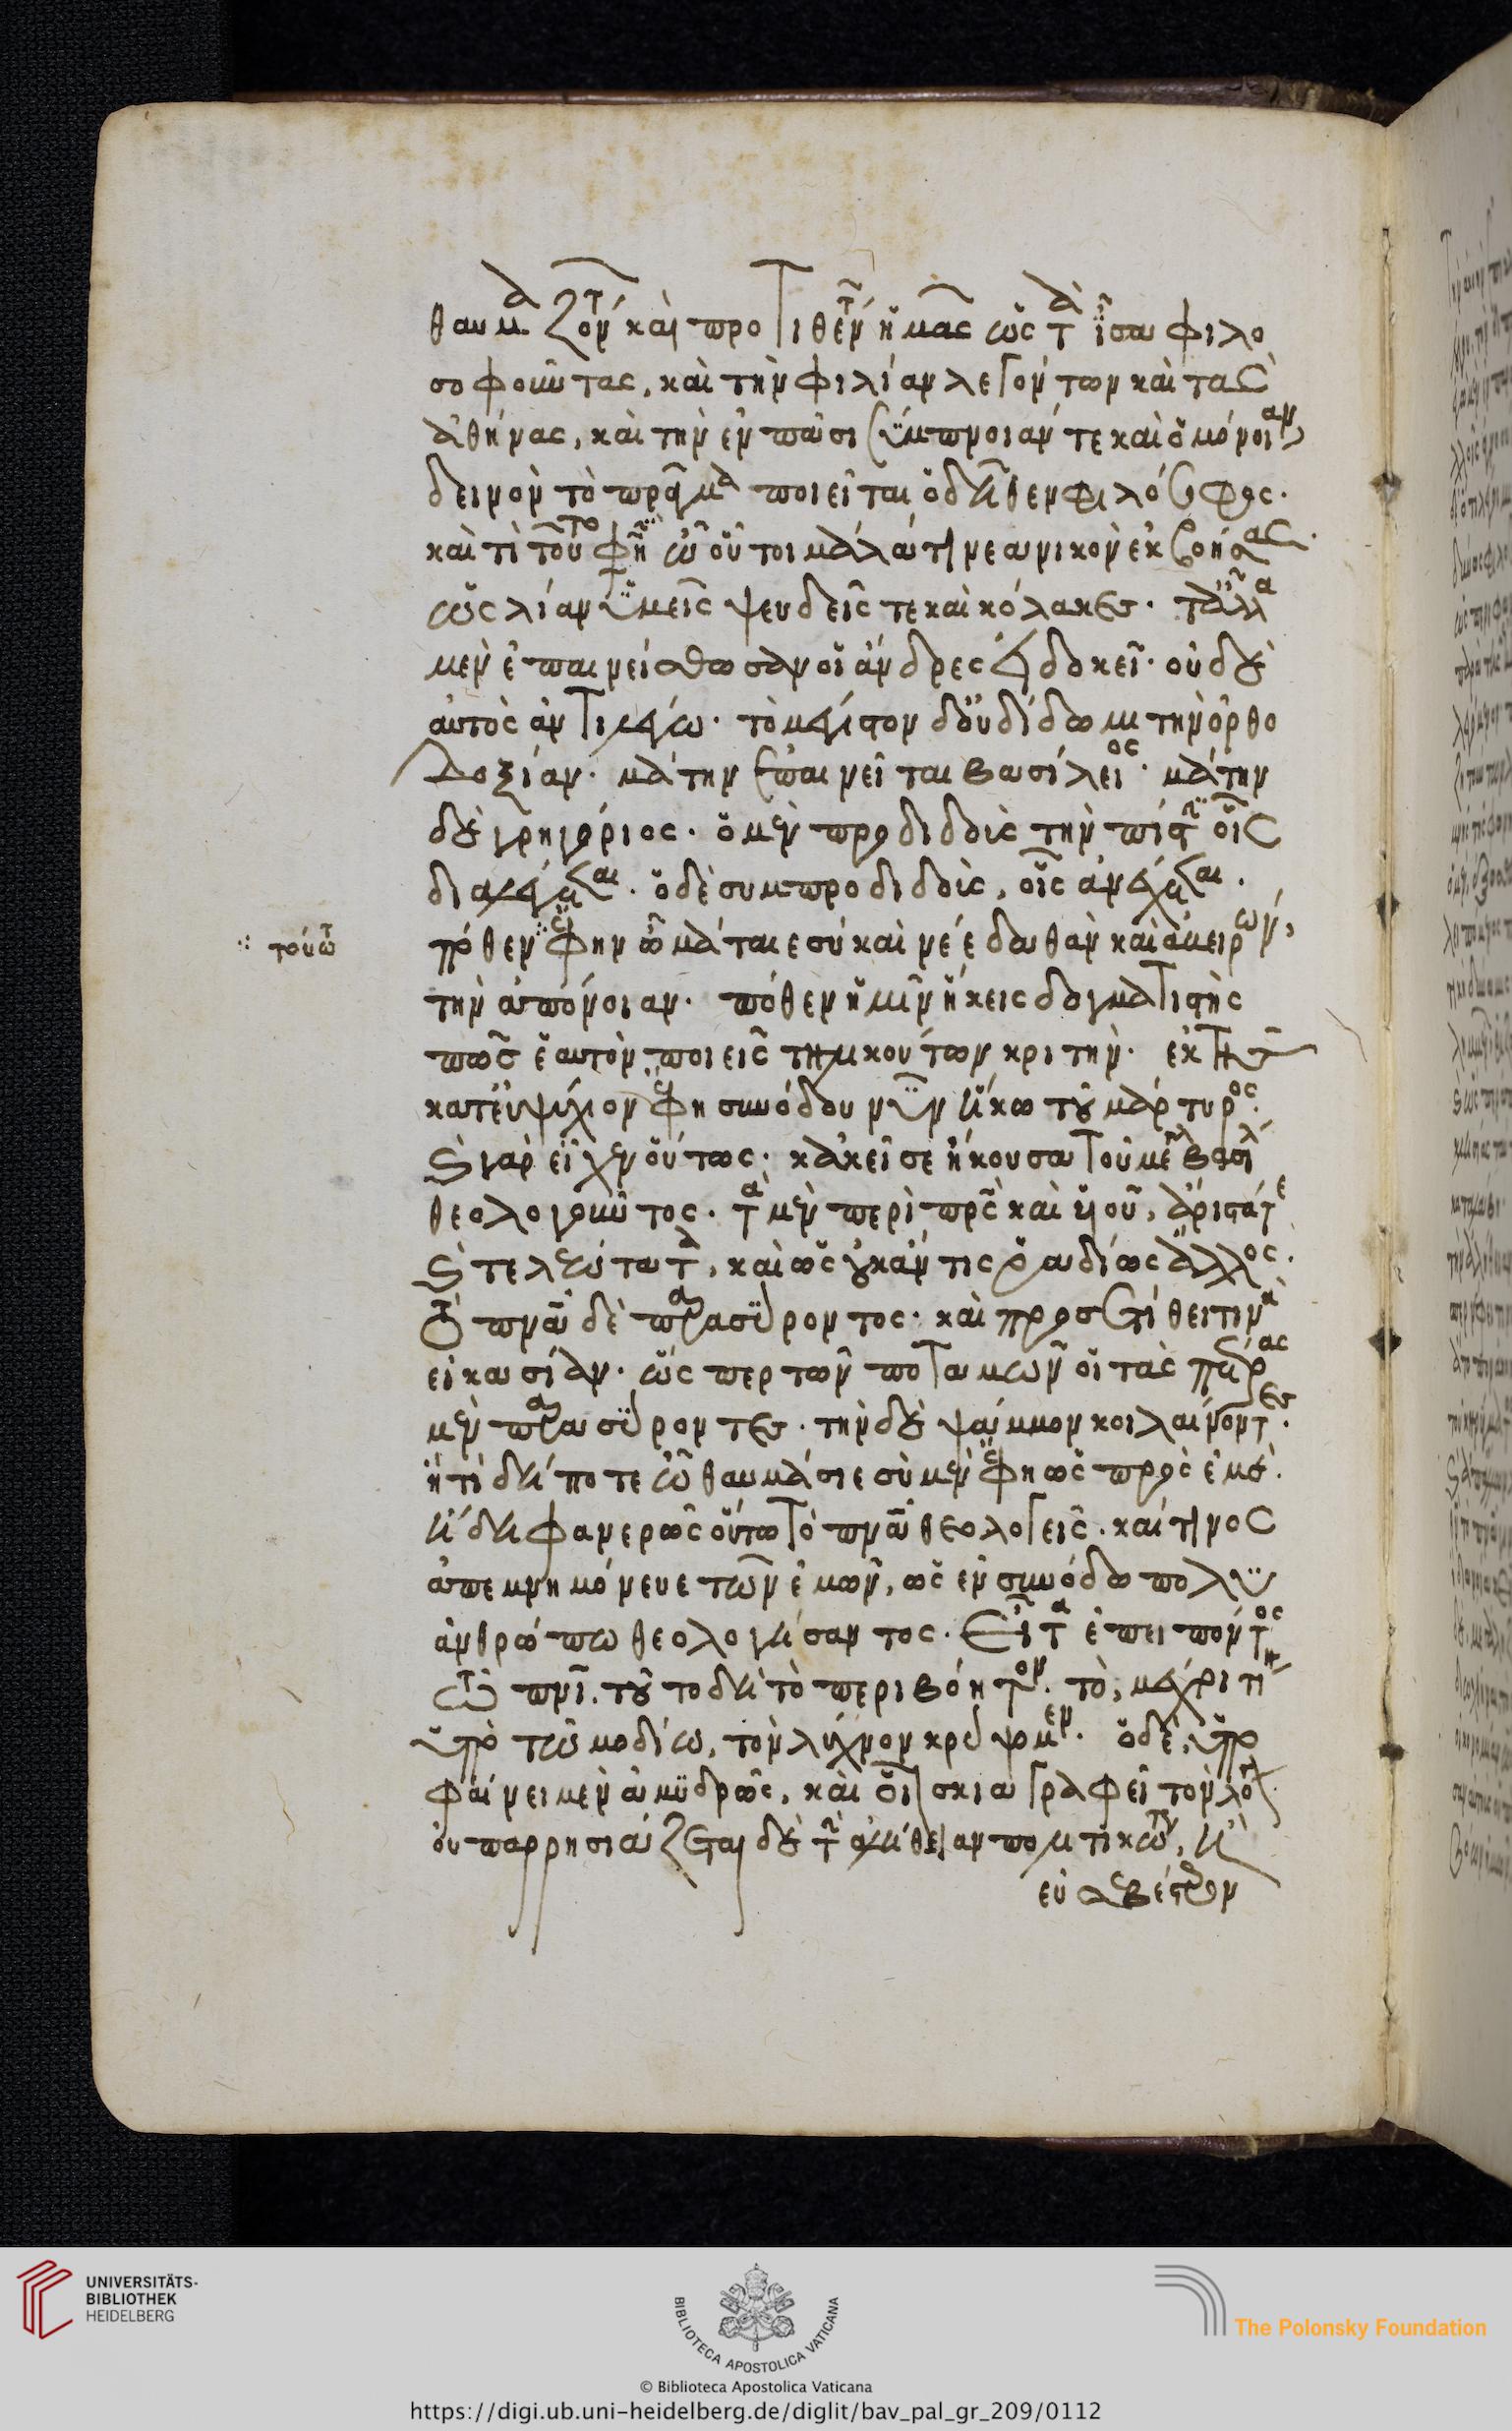 θαυμαζόντων καὶ προστιθέντων ἡμᾶς ὡς τὰ ἴσα φιλο
σοφοῦντας, καὶ τὴν φιλίαν λεγόντων καὶ τὰς
ἀθήνας, καὶ τὴν ἐν πᾶσι σύμπνοιάν τε καὶ ὁμόνοιαν
δεινὸν τὸ πρᾶγμα ποιεῖται ὁ δῆθεν φιλόσοφος.
καὶ τί τοῦτο φησὶν ὦ οὗτοι μάλα τι νεανικὸν ἐκβοήσας.
ὡς λίαν ὑμεῖς ψευδεῖς τε καὶ κόλακες. τἄλλα
μὲν ἐπαινείσθωσαν οἱ ἄνδρες εἰ δοκεῖ. οὐδὲ
αὐτὸς ἀντιλέγω. τὸ μέγιστον δ' οὐ δίδωμι τὴν ὀρθο
δοξίαν. μάτην ἐπαινεῖται βασίλειος. μάτην
δὲ γρηγόριος. ὁ μὲν προδιδοὺς τὴν πίστιν οἷς
διαλέγεται. ὁ δὲ συμπροδιδοὺς, οἷς ἀνέχεται.
πόθεν ἔφην ὦ μάταιε σὺ καὶ νέε δαθὰν καὶ ἀβειρὼν,
τὴν ἀπόνοιαν. πόθεν ἡμῖν ἥκεις δογματιστὴς
πῶς ἑαυτὸν ποιεῖς τηλικούτων κριτήν. ἐκ τῆς
κατ' εὐψύχιον ἔφη συνόδου νῦν ἥκω τοῦ μάρτυρος.
καὶ γὰρ εἶχεν οὕτως. κἀκεῖσε ἤκουσα τοῦ μεγάλου βασιλείου
θεολογοῦντος. τὰ μὲν περὶ πατρὸς καὶ υἱοῦ, ἄριστά τε
καὶ τελεώτατα, καὶ ὡς οὐκ ἄν τις ῥᾳδίως ἄλλος.
τὸ πνεῦμα δὲ παρασύροντος. καὶ προσετίθει τινὰ
εἰκασίαν. ὥσπερ τῶν ποταμῶν οἳ τὰς πέτρας
μὲν παρασύροντες. τὴν δὲ ψάμμον κοιλαίνοντες.
ἢ τί δήποτε ὦ θαυμάσιε σὺ μὲν ἔφη ὡς πρὸς ἐμέ.
ἤδη φανερῶς οὕτω τὸ πνεῦμα θεολογεῖς. καί τινος
ἀπεμνημόνευε τῶν ἐμῶν, ὡς ἐν συνόδῳ πολυ
ανθρώπῳ θεολογήσαντος. εἶτα ἐπειπόντος
τῶ πνεύματι. τοῦτο δὴ τὸ περιβόητον. τὸ, μέχρι τίνος
ὑπὸ τῷ μοδίῳ, τὸν λύχνον κρύψομεν. ὁ δὲ, ὑπο
φαίνει μὲν ἀμυδρῶς, καὶ οἷον σκιαγραφεῖ τὸν λόγον.
οὐ παρρησιάζεται δὲ τὴν ἀλήθειαν πολιτικώτερον, ἢ
εὐσεβέστερον
τοῦ ὦ
UNIVERSITÄTS-
BIBLIOTHEK
HEIDELBERG
BIBLIOTECA APOSTOLICA VATICANA
The Polonsky Foundation
© Biblioteca Apostolica Vaticana
https://digi.ub.uni-heidelberg.de/diglit/bav_pal_gr_209/0112